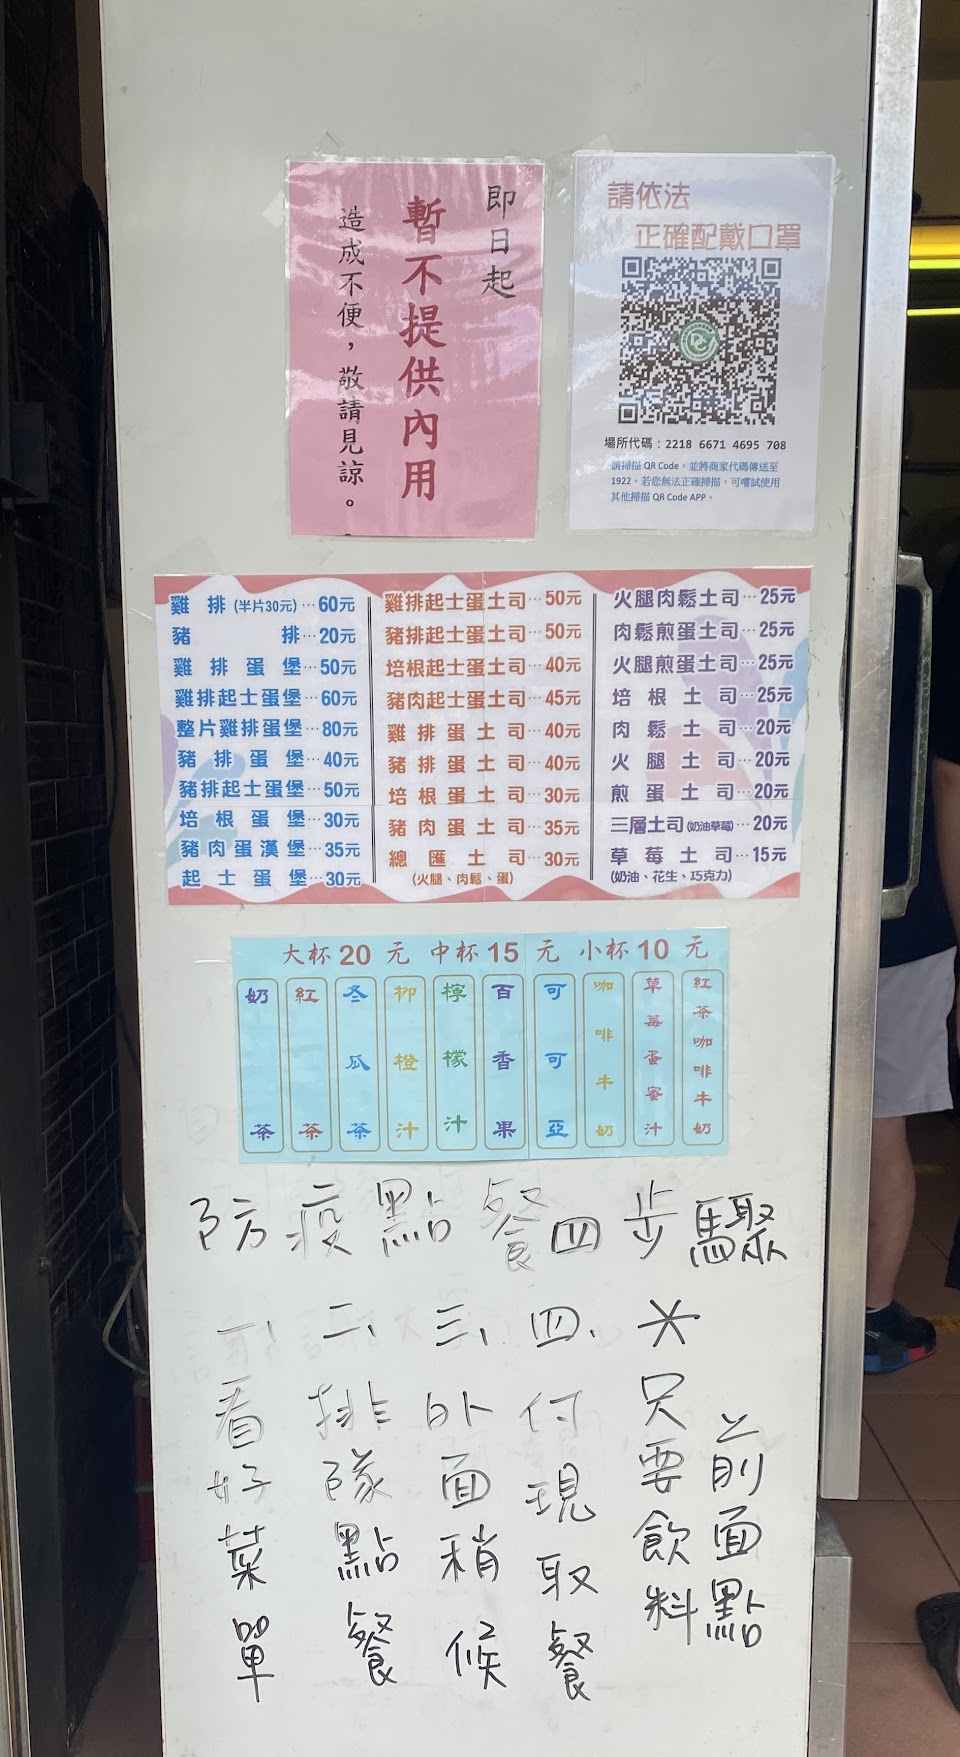 即日起
暫不提供內用
造成不便，敬請見諒。
請依法
正確配戴口罩
場所代碼：2218 6671 4695 708
請掃描 QR Code，並將商家代碼傳送至
1922。若您無法正確掃描，可嚐試使用
其他掃描 QR Code APP。
雞排(半片30元)…60元
豬排…20元
雞排蛋堡…50元
雞排起士蛋堡…60元
整片雞排蛋堡…80元
豬排蛋堡…40元
豬排起士蛋堡…50元
培根蛋堡…30元
豬肉蛋漢堡…35元
起士蛋堡…30元
雞排起士蛋土司…50元
豬排起士蛋土司…50元
培根起士蛋土司…40元
豬肉起士蛋土司…45元
雞排蛋土司…40元
豬排蛋土司…40元
培根蛋土司…30元
豬肉蛋土司…35元
總匯土司…30元
(火腿、肉鬆、蛋)
火腿肉鬆土司…25元
肉鬆煎蛋土司…25元
火腿煎蛋土司…25元
培根土司…25元
肉鬆土司…20元
火腿土司…20元
煎蛋土司…20元
三層土司(奶油草莓)…20元
草莓土司…15元
(奶油、花生、巧克力)
大杯20元 中杯15元 小杯10元
奶茶
紅茶
冬瓜茶
柳橙汁
檸檬汁
百香果
可可亞
咖啡牛奶
草莓蛋蜜汁
紅茶咖啡牛奶
防疫點餐四步驟
一、看好菜單
二、排隊點餐
三、外面稍候
四、付現取餐
＊只要飲料
上前面點